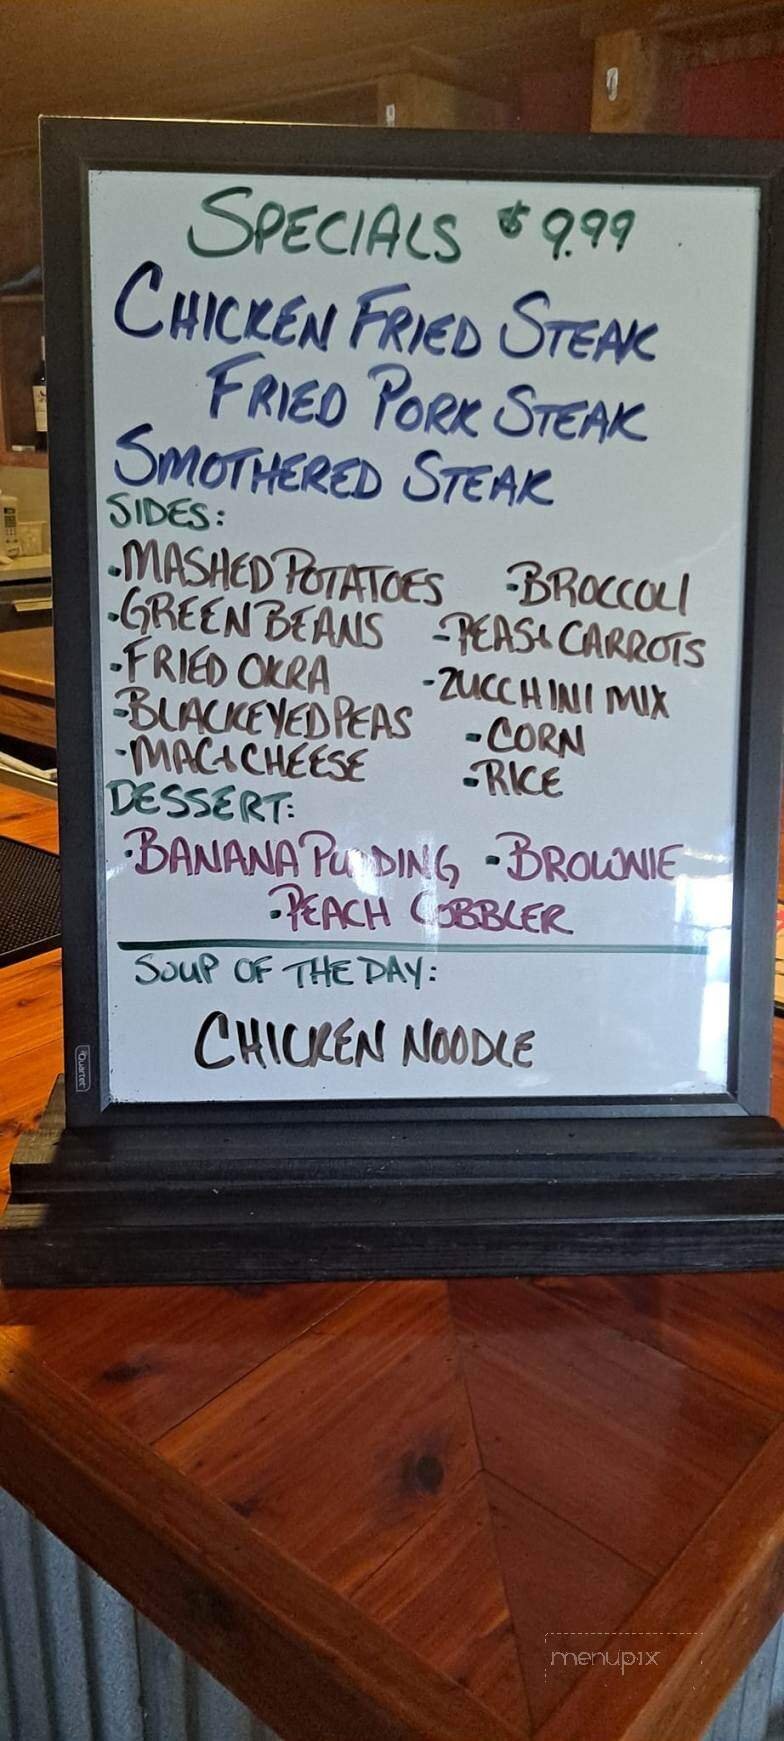 SPECIALS $9.99
CHICKEN FRIED STEAK
FRIED PORK STEAK
SMOTHERED STEAK
SIDES:
·MASHED POTATOES
·GREEN BEANS
·FRIED OKRA
-BLACKEYED PEAS
·MAC & CHEESE
-BROCCOLI
-PEAS & CARROTS
-ZUCCHINI MIX
-CORN
-RICE
DESSERT:
·BANANA PUDDING -BROWNIE
·PEACH COBBLER
SOUP OF THE DAY:
CHICKEN NOODLE
Quartet
menupix